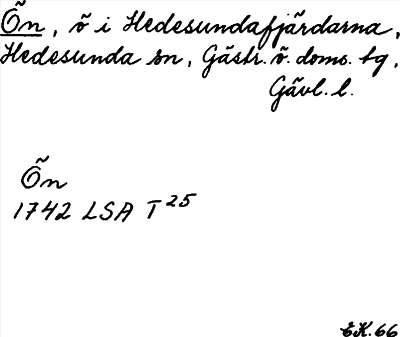 Ön, ö i Hedesundafjärdarna,
Hedesunda sn, Gästr. ö. doms. tg,
Gävl. l.
Ön
1742 LSA T 25
EK. 66